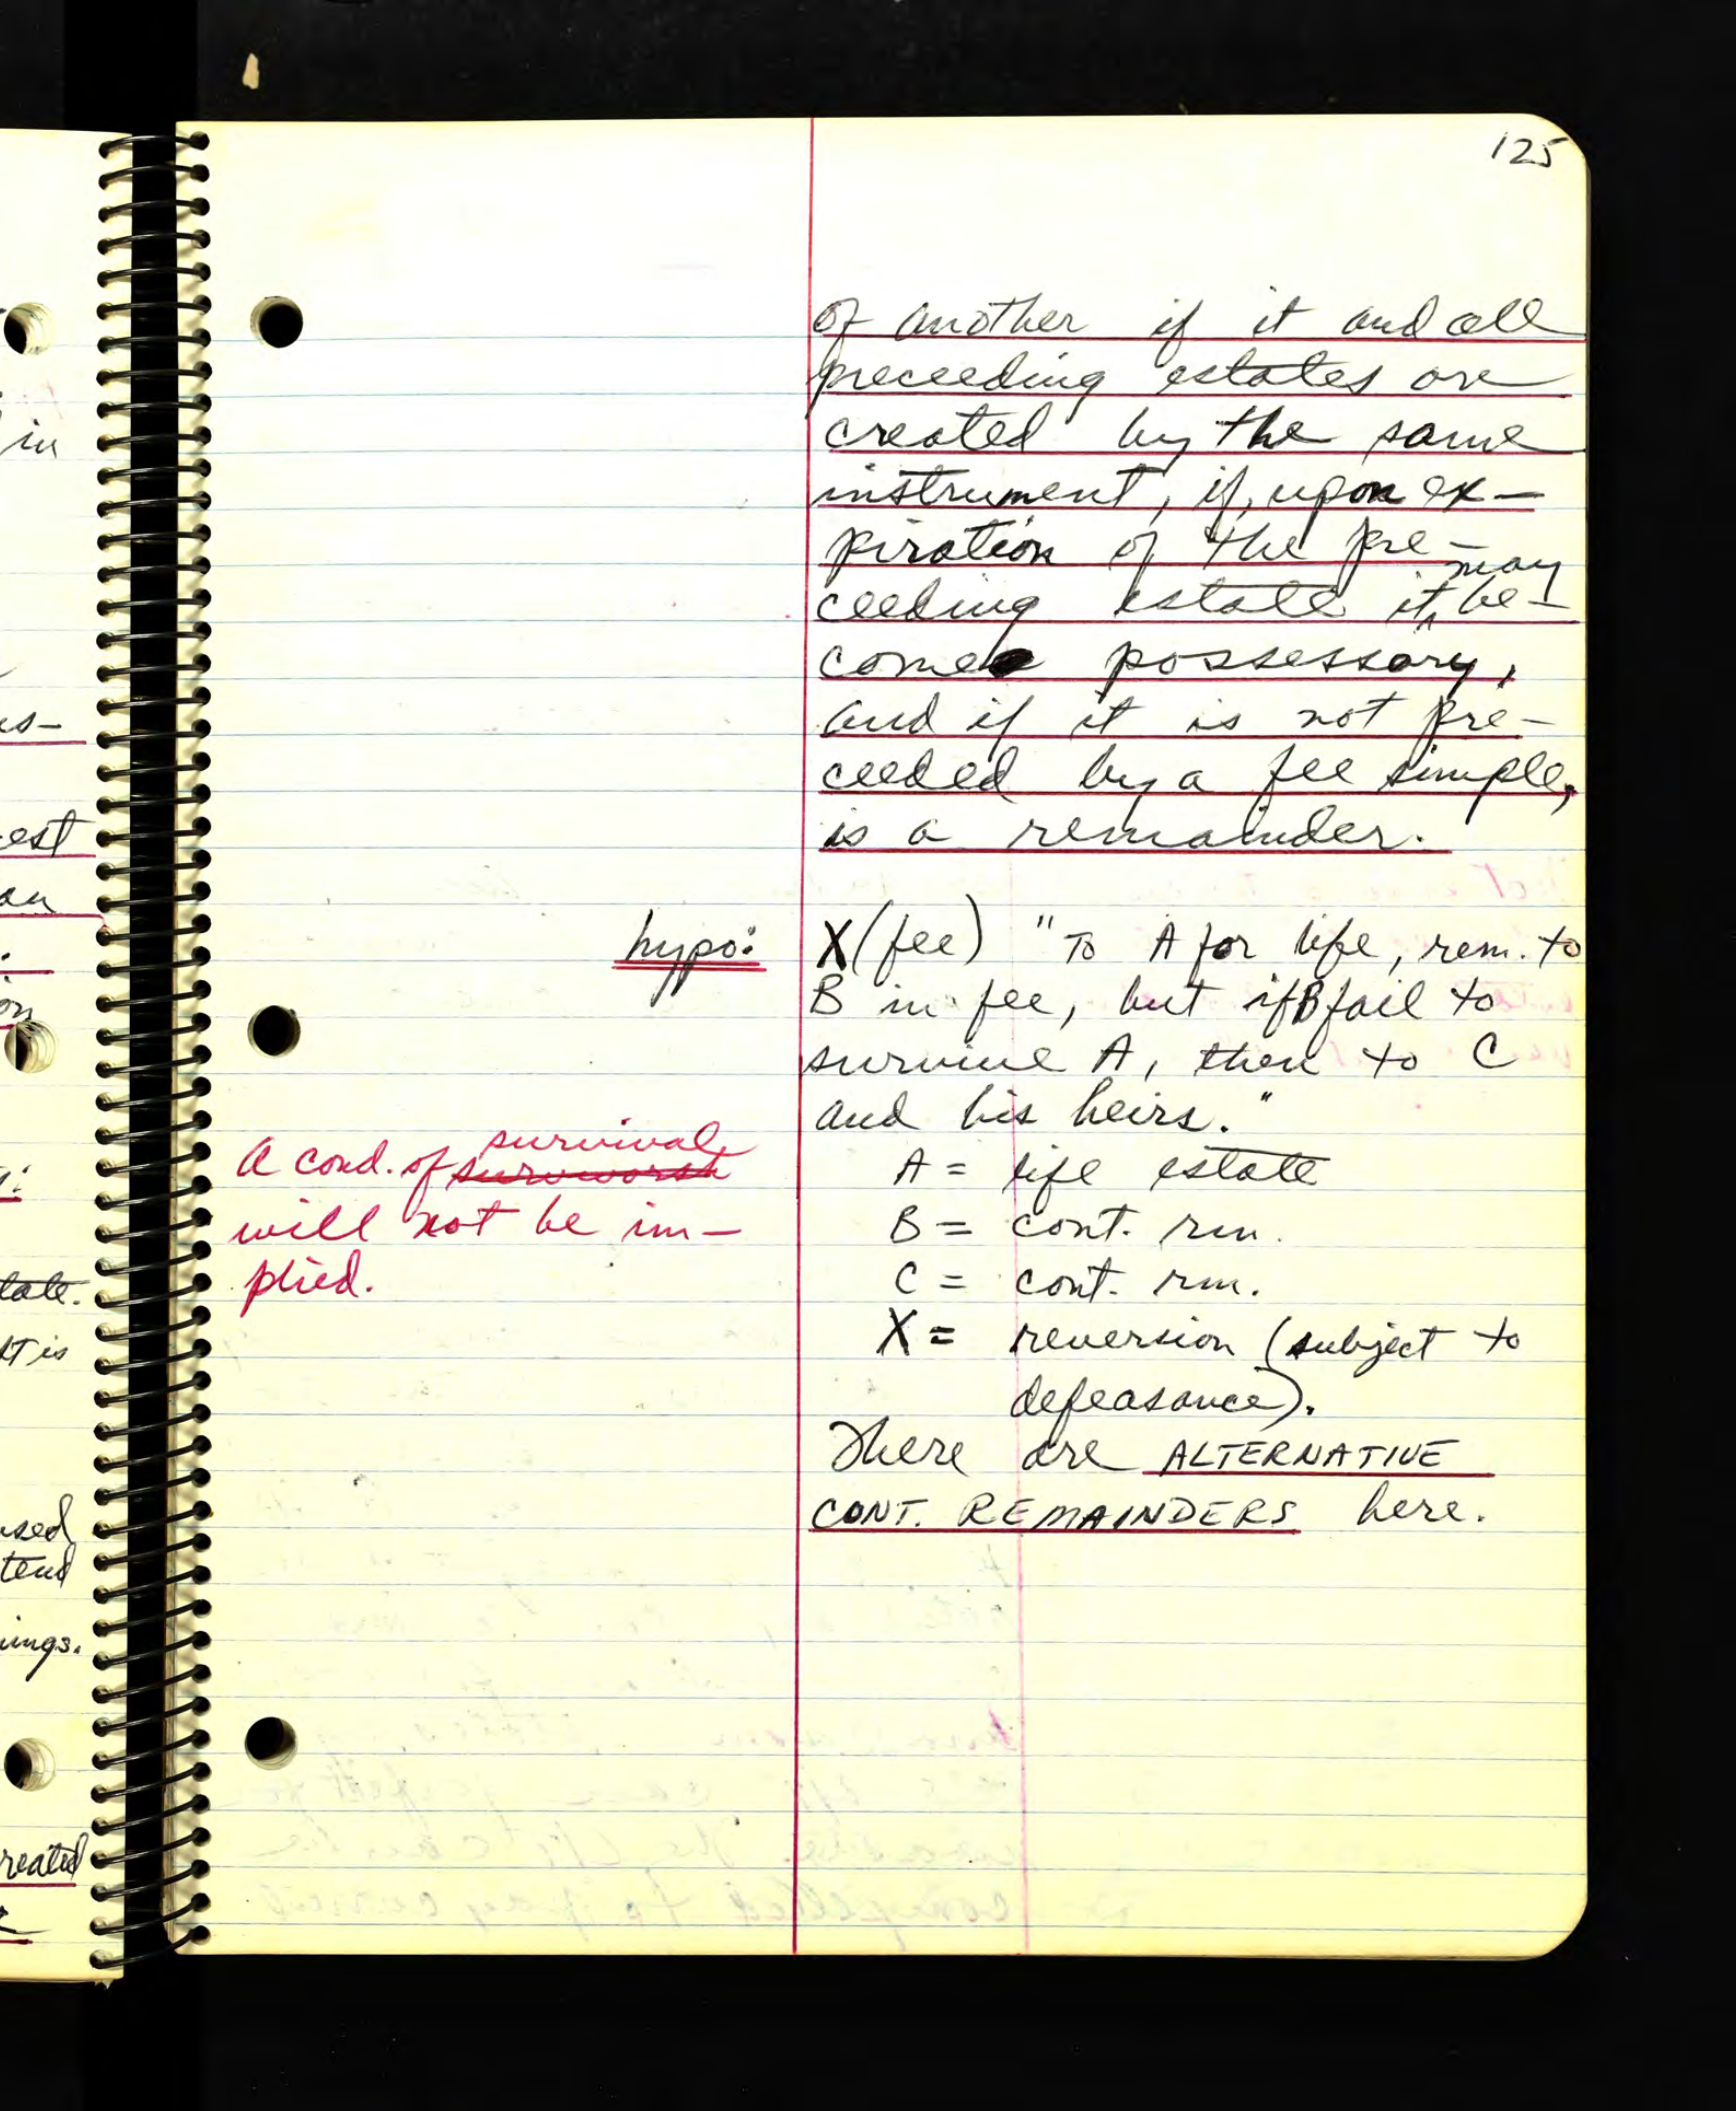 125
of another if it and all
preceeding estates are
created by the same
instrument, if, upon ex-
piration of the pre-
ceeding estate it may be-
come possessory,
and if it is not pre-
ceeded by a fee simple,
is a remainder.
hypo: X (fee) "To A for life, rem. to
B in fee, but if B fail to
survive A, then to C
and his heirs."
A cond. of survival
will not be im-
plied.
A = life estate
B = cont. rm.
C = cont. rm.
X = reversion (subject to
defeasance).
There are ALTERNATIVE
CONT. REMAINDERS here.
in
est
an
on
tate.
st is
used
tend
ings.
reated